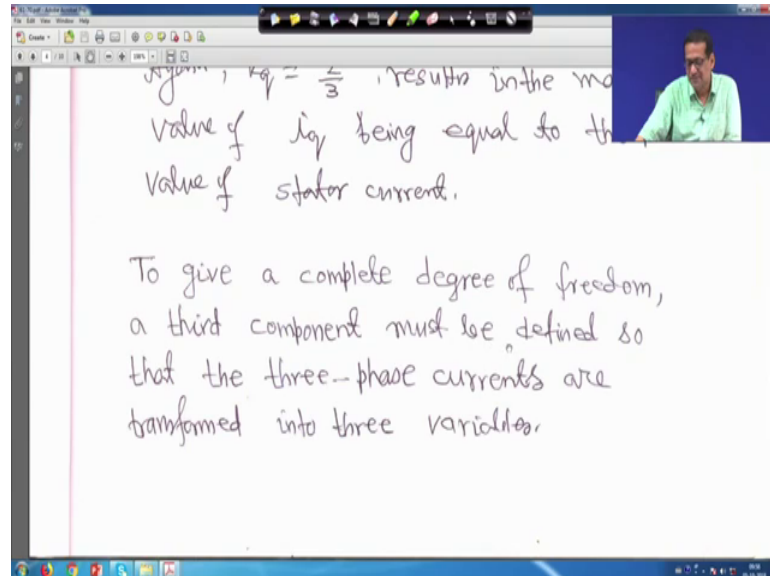 Adobe Acrobat Pro
File Edit View Window Help
Create
Again, kq = 2/3, results in the ma
value of iq being equal to the
value of stator current.
To give a complete degree of freedom,
a third component must be defined so
that the three-phase currents are
transformed into three variables.